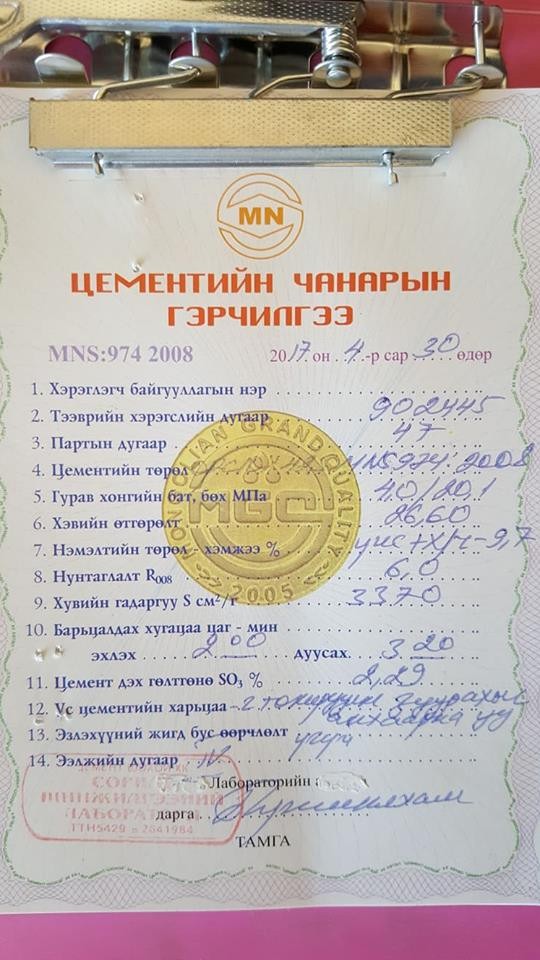 MN
ЦЕМЕНТИЙН ЧАНАРЫН
ГЭРЧИЛГЭЭ
MNS:974 2008 2017 он 4-р сар 30 өдөр
1. Хэрэглэгч байгууллагын нэр
2. Тээврийн хэрэгслийн дугаар 902445
3. Партын дугаар 47
4. Цементийн төрөл MNS974:2008
5. Гурав хонгийн бат, бөх МПа 4.0/20.1
6. Хэвийн өтгөрөлт 26,60
7. Нэмэлтийн төрөл - хэмжээ % -9,7
8. Нунтаглалт R008 6,0
9. Хувийн гадаргуу S см²/г 3370
10. Барьцалдах хугацаа цаг - мин
эхлэх 2 00 дуусах 3 20
11. Цемент дэх гөлтгөнө SO3 % 2,29
12. Ус цементийн харьцаа
13. Эзлэхүүний жигд бус өөрчлөлт
14. Ээлжийн дугаар IV
Лабораторийн
дарга
ТАМГА
MONGOLIAN GRAND QUALITY
MGQ
2005
ШИНЖИЛГЭЭНИЙ
ЛАБОРАТОРИ